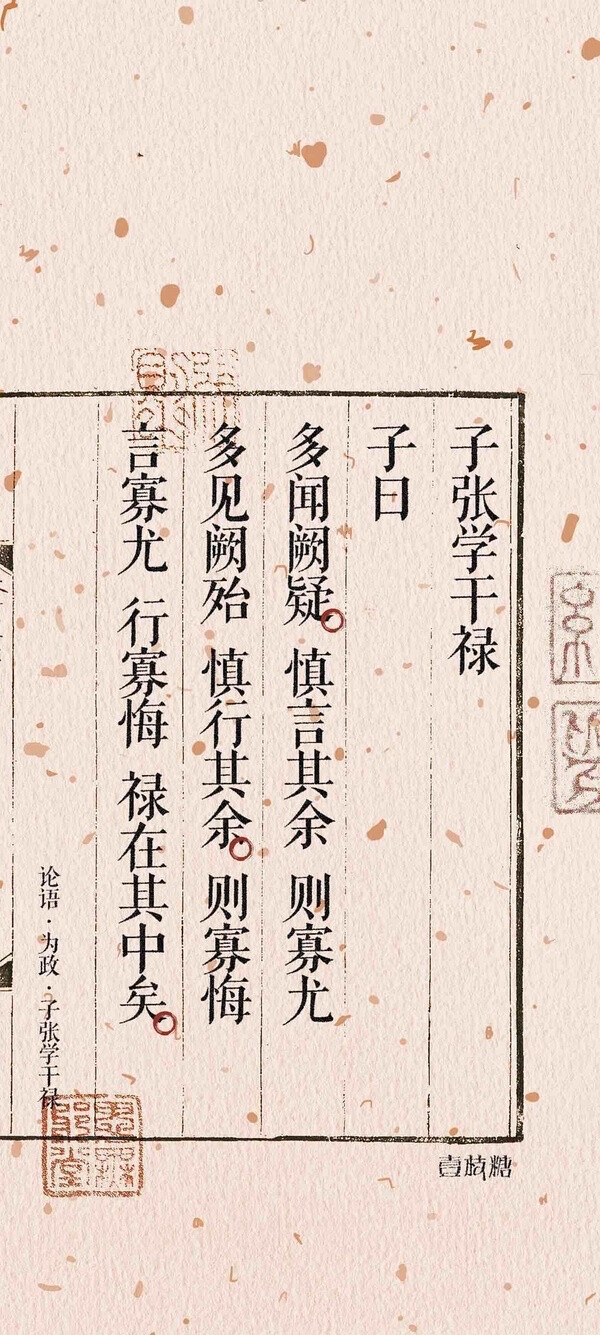 子张学干禄
子曰
多闻阙疑 慎言其余 则寡尤
多见阙殆 慎行其余 则寡悔
言寡尤 行寡悔 禄在其中矣
论语·为政·子张学干禄
壹枝糖